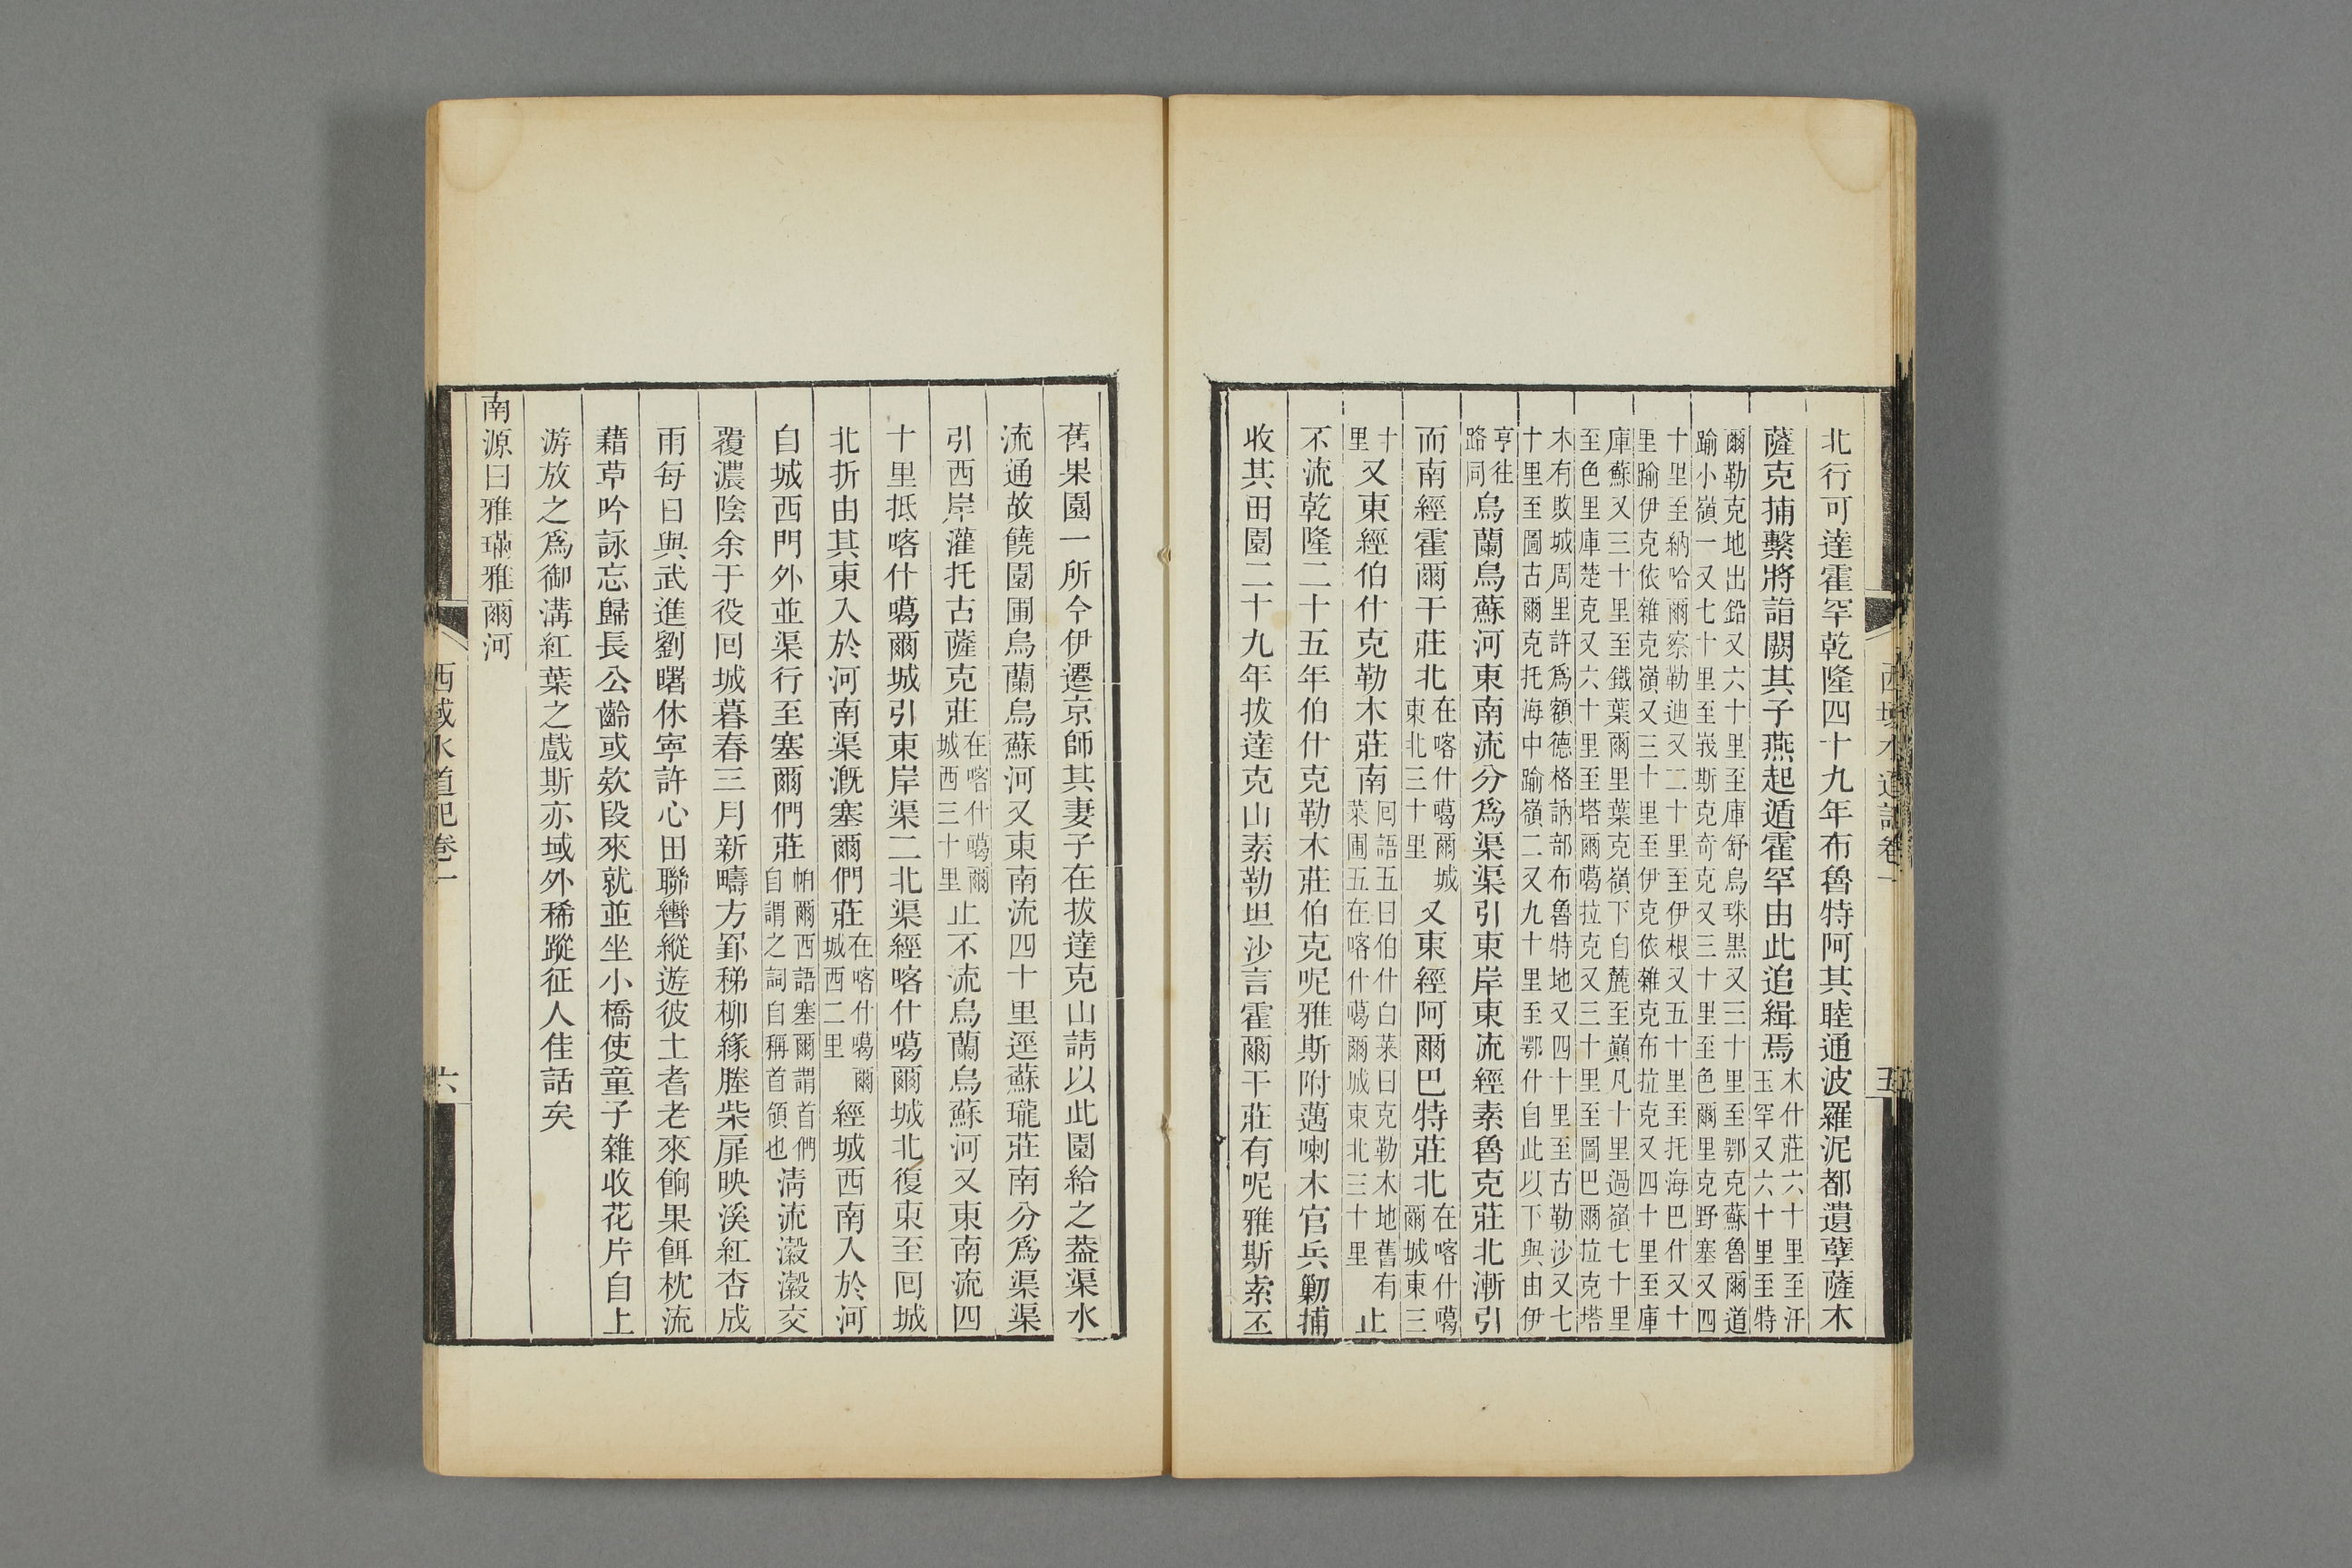 北行可達霍罕乾隆四十九年布魯特阿其睦通波羅泥都遺孽薩木
薩克捕繫將詣闕其子燕起遁霍罕由此追緝焉木什莊六十里至汗玉罕又六十里至特
爾勒克地出鉛又六十里至庫舒烏珠黑又三十里至鄂克蘇魯爾道踰小嶺一又七十里至峩斯克奇克又三十里至色爾里克野塞又四
十里至納哈爾察勒迪又二十里至伊根又五十里至托海巴什又十里踰伊克依雜克嶺又三十里至伊克依雜克布拉克又四十里至庫
庫蘇又三十里至鐵葉爾里葉克嶺下自麓至巔凡十里過嶺七十里至色里庫楚克又六十里至塔爾噶拉克又三十里至圖巴爾拉克塔
木有敗城周里許爲額德格訥部布魯特地又四十里至古勒沙又七十里至圖古爾克托海中踰嶺二又九十里至鄂什自此以下與由伊
亨往路同烏蘭烏蘇河東南流分爲渠渠引東岸東流經素魯克莊北漸引
而南經霍爾干莊北在喀什噶爾城東北三十里又東經阿爾巴特莊北在喀什噶爾城東三
十里又東經伯什克勒木莊南回語五曰伯什白菜曰克勒木地舊有菜圃五在喀什噶爾城東北三十里止
不流乾隆二十五年伯什克勒木莊伯克呢雅斯附邁喇木官兵勦捕
收其田園二十九年拔達克山素勒坦沙言霍爾干莊有呢雅斯索丕
西域水道記卷一
五
舊果園一所今伊遷京師其妻子在拔達克山請以此園給之葢渠水
流通故饒園圃烏蘭烏蘇河又東南流四十里逕蘇瓏莊南分爲渠渠
引西岸灌托古薩克莊在喀什噶爾城西三十里止不流烏蘭烏蘇河又東南流四
十里抵喀什噶爾城引東岸渠二北渠經喀什噶爾城北復東至回城
北折由其東入於河南渠漑塞爾們莊在喀什噶爾城西二里經城西南入於河
自城西門外並渠行至塞爾們莊帕爾西語塞爾謂首們自謂之詞自稱首領也淸流瀫瀫交
覆濃陰余于役回城暮春三月新疇方罫稊柳緣塍柴扉映溪紅杏成
雨每日與武進劉曙休寧許心田聯轡縱遊彼土耆老來餉果餌枕流
藉草吟詠忘歸長公齡或欵段來就並坐小橋使童子雜收花片自上
游放之爲御溝紅葉之戲斯亦域外稀蹤征人佳話矣
南源曰雅璊雅爾河
西域水道記卷一
六